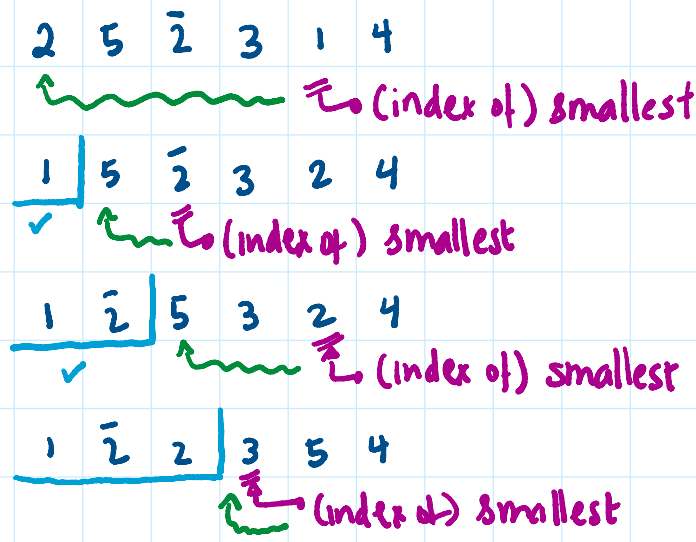 2 5 2̄ 3 1 4
(index of) smallest
1 5 2̄ 3 2 4
✓ (index of) smallest
1 2̄ 5 3 2 4
✓ (index of) smallest
1 2̄ 2 3 5 4
(index of) smallest